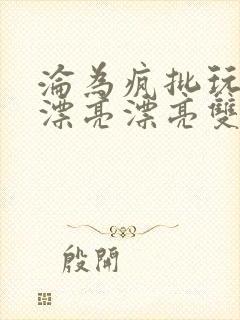 淪為瘋批玩
漂亮漂亮雙
殷開